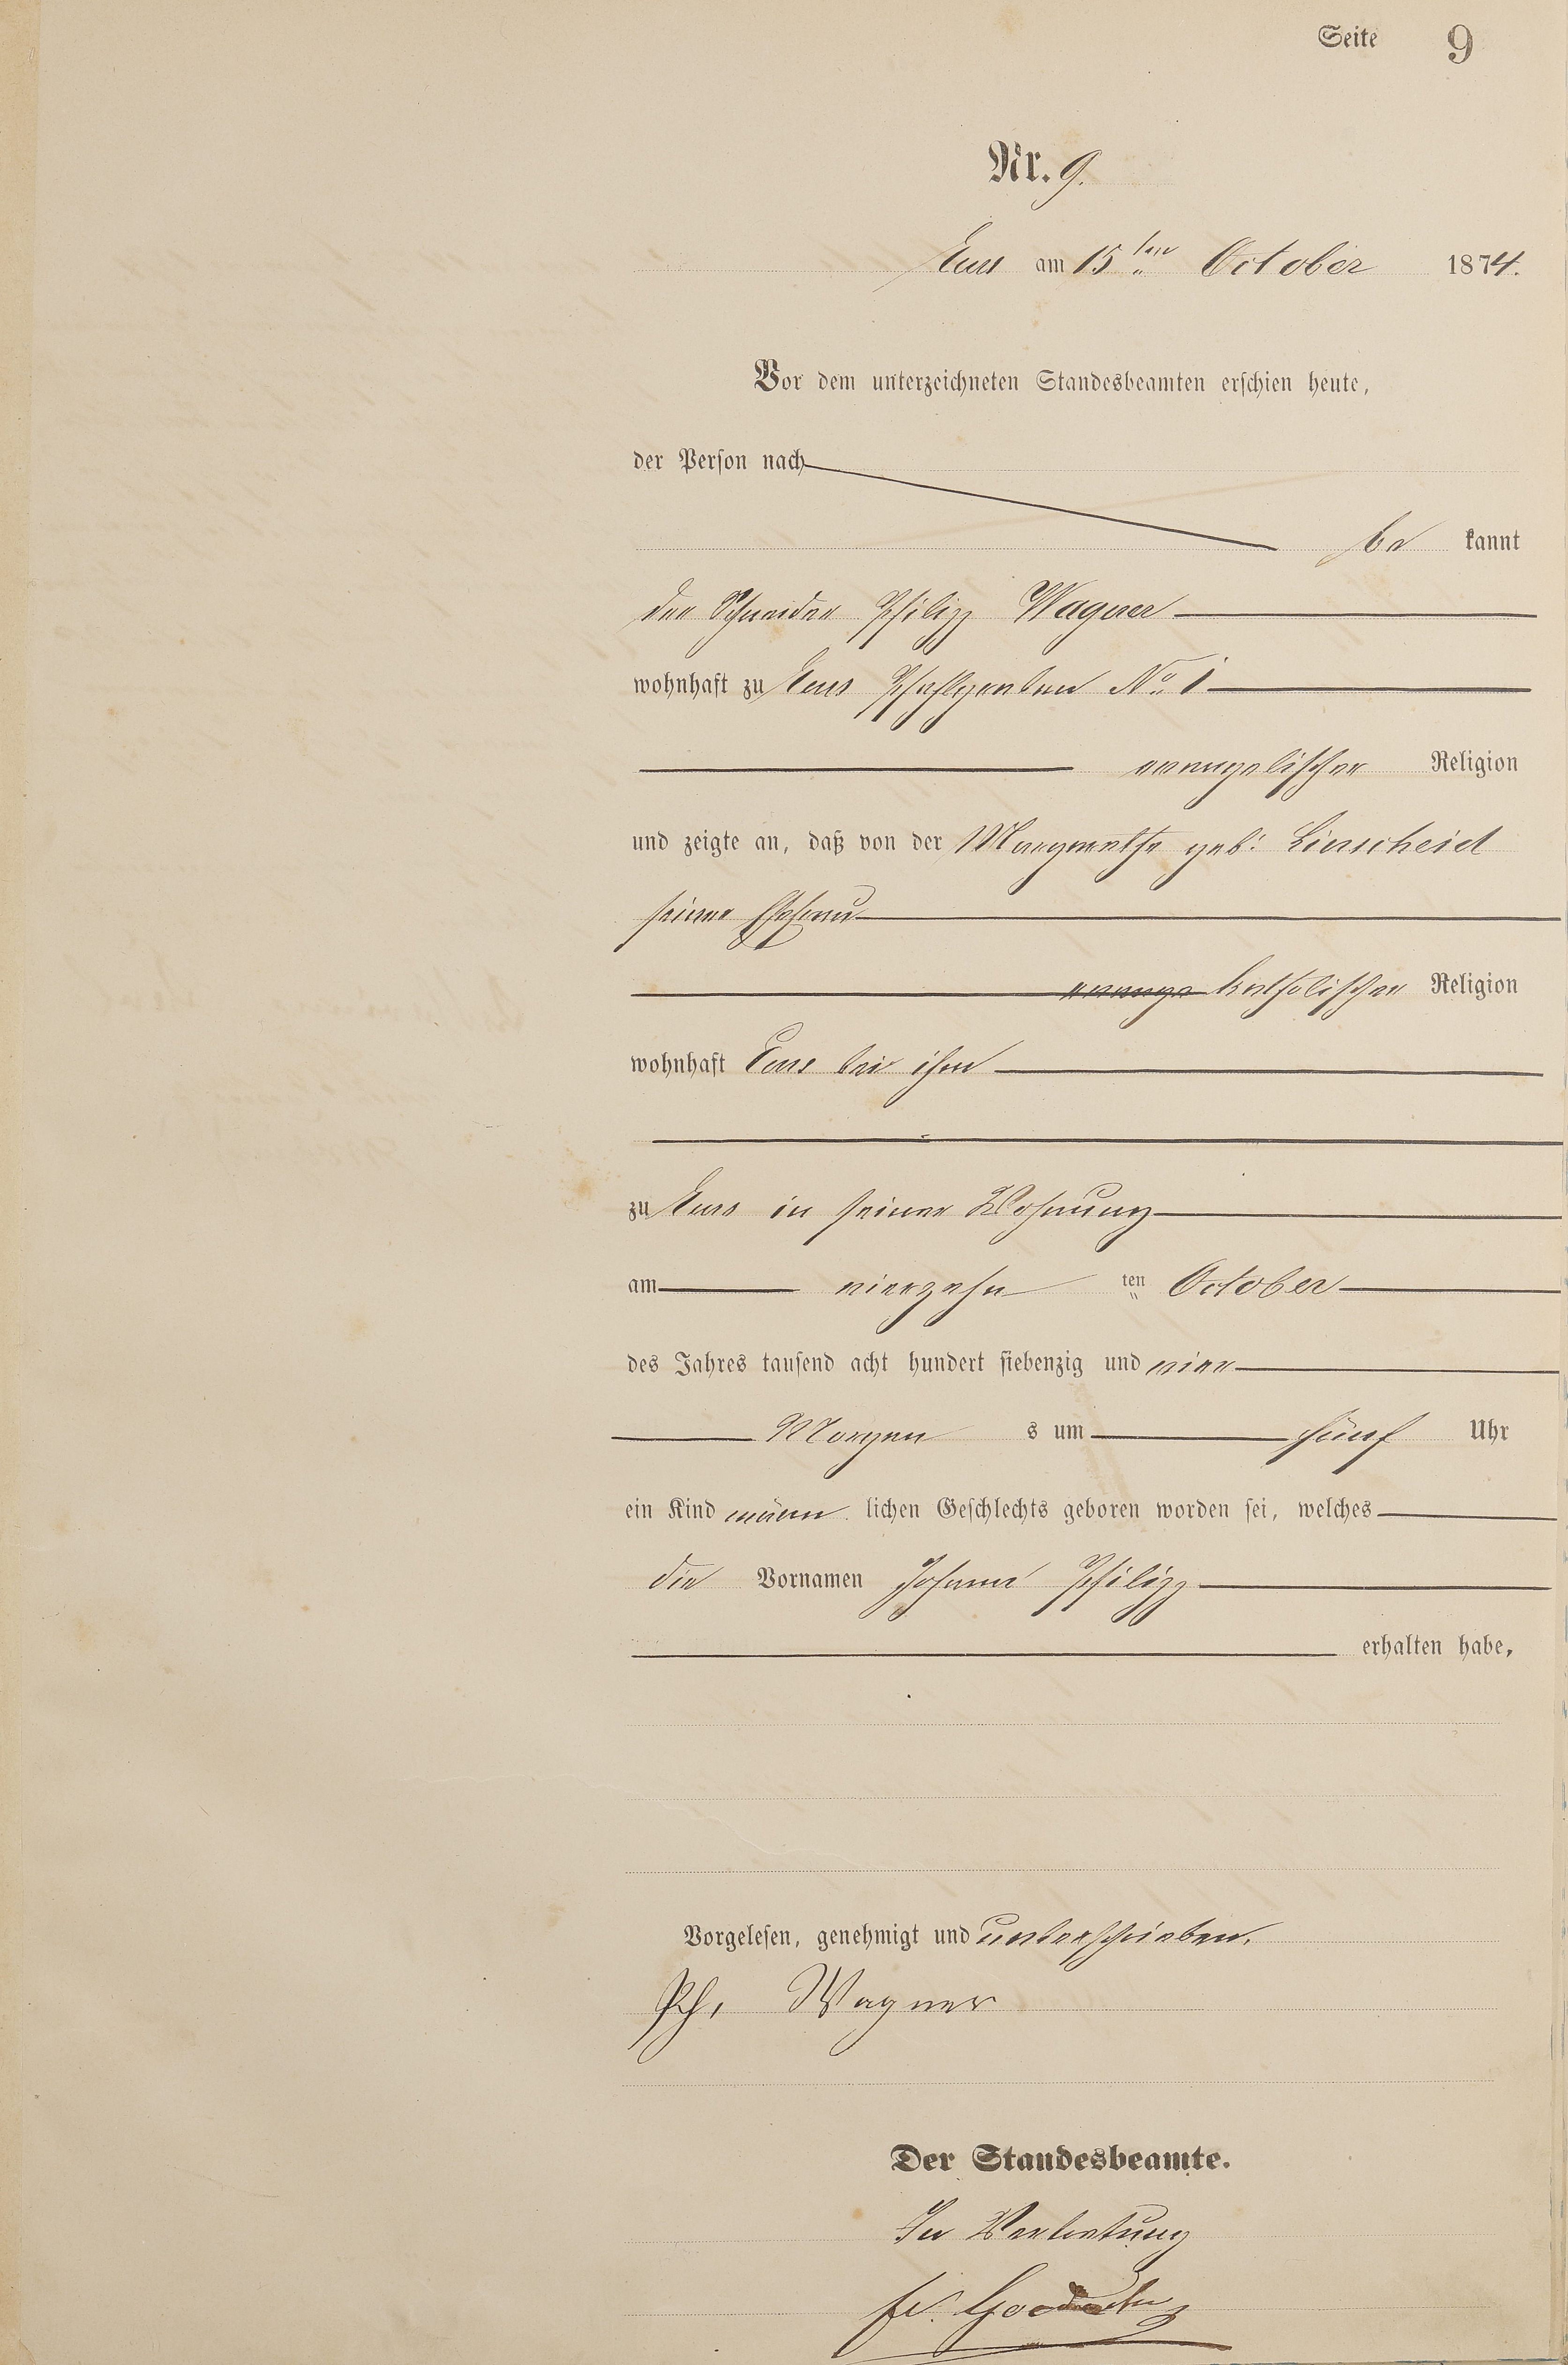 Seite 9
Nr. 9.
Ems am 15ten October 1874.
Vor dem unterzeichneten Standesbeamten erschien heute,
der Person nach
be kannt
der Schneider Philipp Wagner
wohnhaft zu Ems Pfahlgraben No. 1
evangelischer Religion
und zeigte an, daß von der Margarethe geb. Linscheid
seiner Ehefrau
evange katholischer Religion
wohnhaft Ems bei ihm
zu Ems in seiner Wohnung
am vierzehn ten October
des Jahres tausend acht hundert siebenzig und vier
Morgen s um fünf Uhr
ein Kind männ lichen Geschlechts geboren worden sei, welches
die Vornamen Johann Philipp
erhalten habe,
Vorgelesen, genehmigt und unterschrieben.
Ph. Wagner
Der Standesbeamte.
In Vertretung